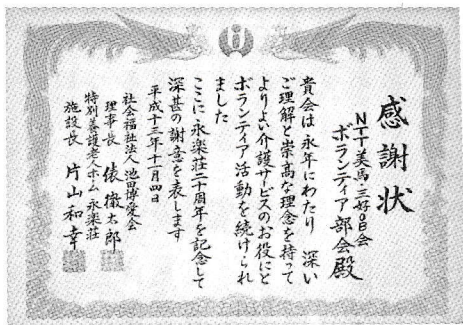 感謝状
NTT美馬・三好OB会
ボランティア部会殿
貴会は永年にわたり 深い
ご理解と崇高な理念を持って
よりよい介護サービスのお役にと
ボランティア活動を続けられ
ました
ここに永楽荘二十周年を記念して
深甚の謝意を表します
平成十三年十一月四日
社会福祉法人池田博愛会
理事長 俵徹太郎
特別養護老人ホーム永楽荘
施設長 片山和幸